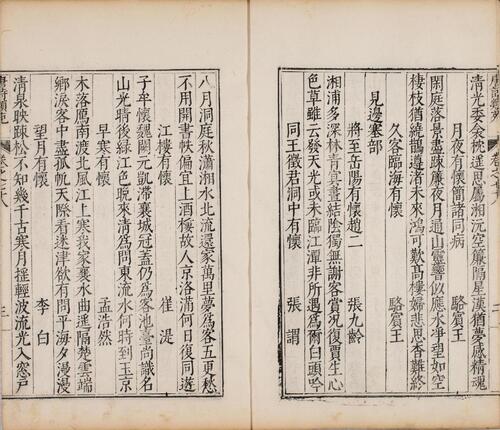 清光委衾枕遙思屬湘沅空簾隔星漢猶夢感精魂
月夜有懷簡諸同病 駱賓王
閑庭落景盡疎簾夜月通山靈響似應水淨望如空
棲枝猶繞鵲遵渚未來鴻可歎高樓婦悲思杳難終
久客臨海有懷 駱賓王
見邊塞部
將至岳陽有懷趙二 張九齡
湘浦多深林青冥晝結陰獨無謝客賞況復賈生心
色草雖云發天光或未臨江潭非所遇爲爾白頭吟
同王徵君洞中有懷 張謂
八月洞庭秋瀟湘水北流還家萬里夢爲客五更愁
不用開書帙偏宜上酒樓故人京洛滿何日復同遊
江樓有懷 崔湜
子牟懷魏闕元凱滯襄城冠蓋仍爲客池臺尚識名
山光晴後綠江色晚來清爲問東流水何時到玉京
早寒有懷 孟浩然
木落鴈南渡北風江上寒我家襄水曲遙隔楚雲端
鄉淚客中盡孤帆天際看迷津欲有問平海夕漫漫
望月有懷 李白
清泉映疎松不知幾千古寒月搖輕波流光入窓戶